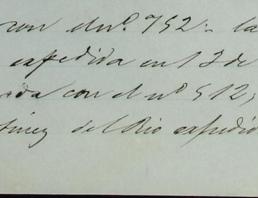 con el nº. 752: la
expedida en 13 de
ida con el nº 512,
tinez del Rio expedid